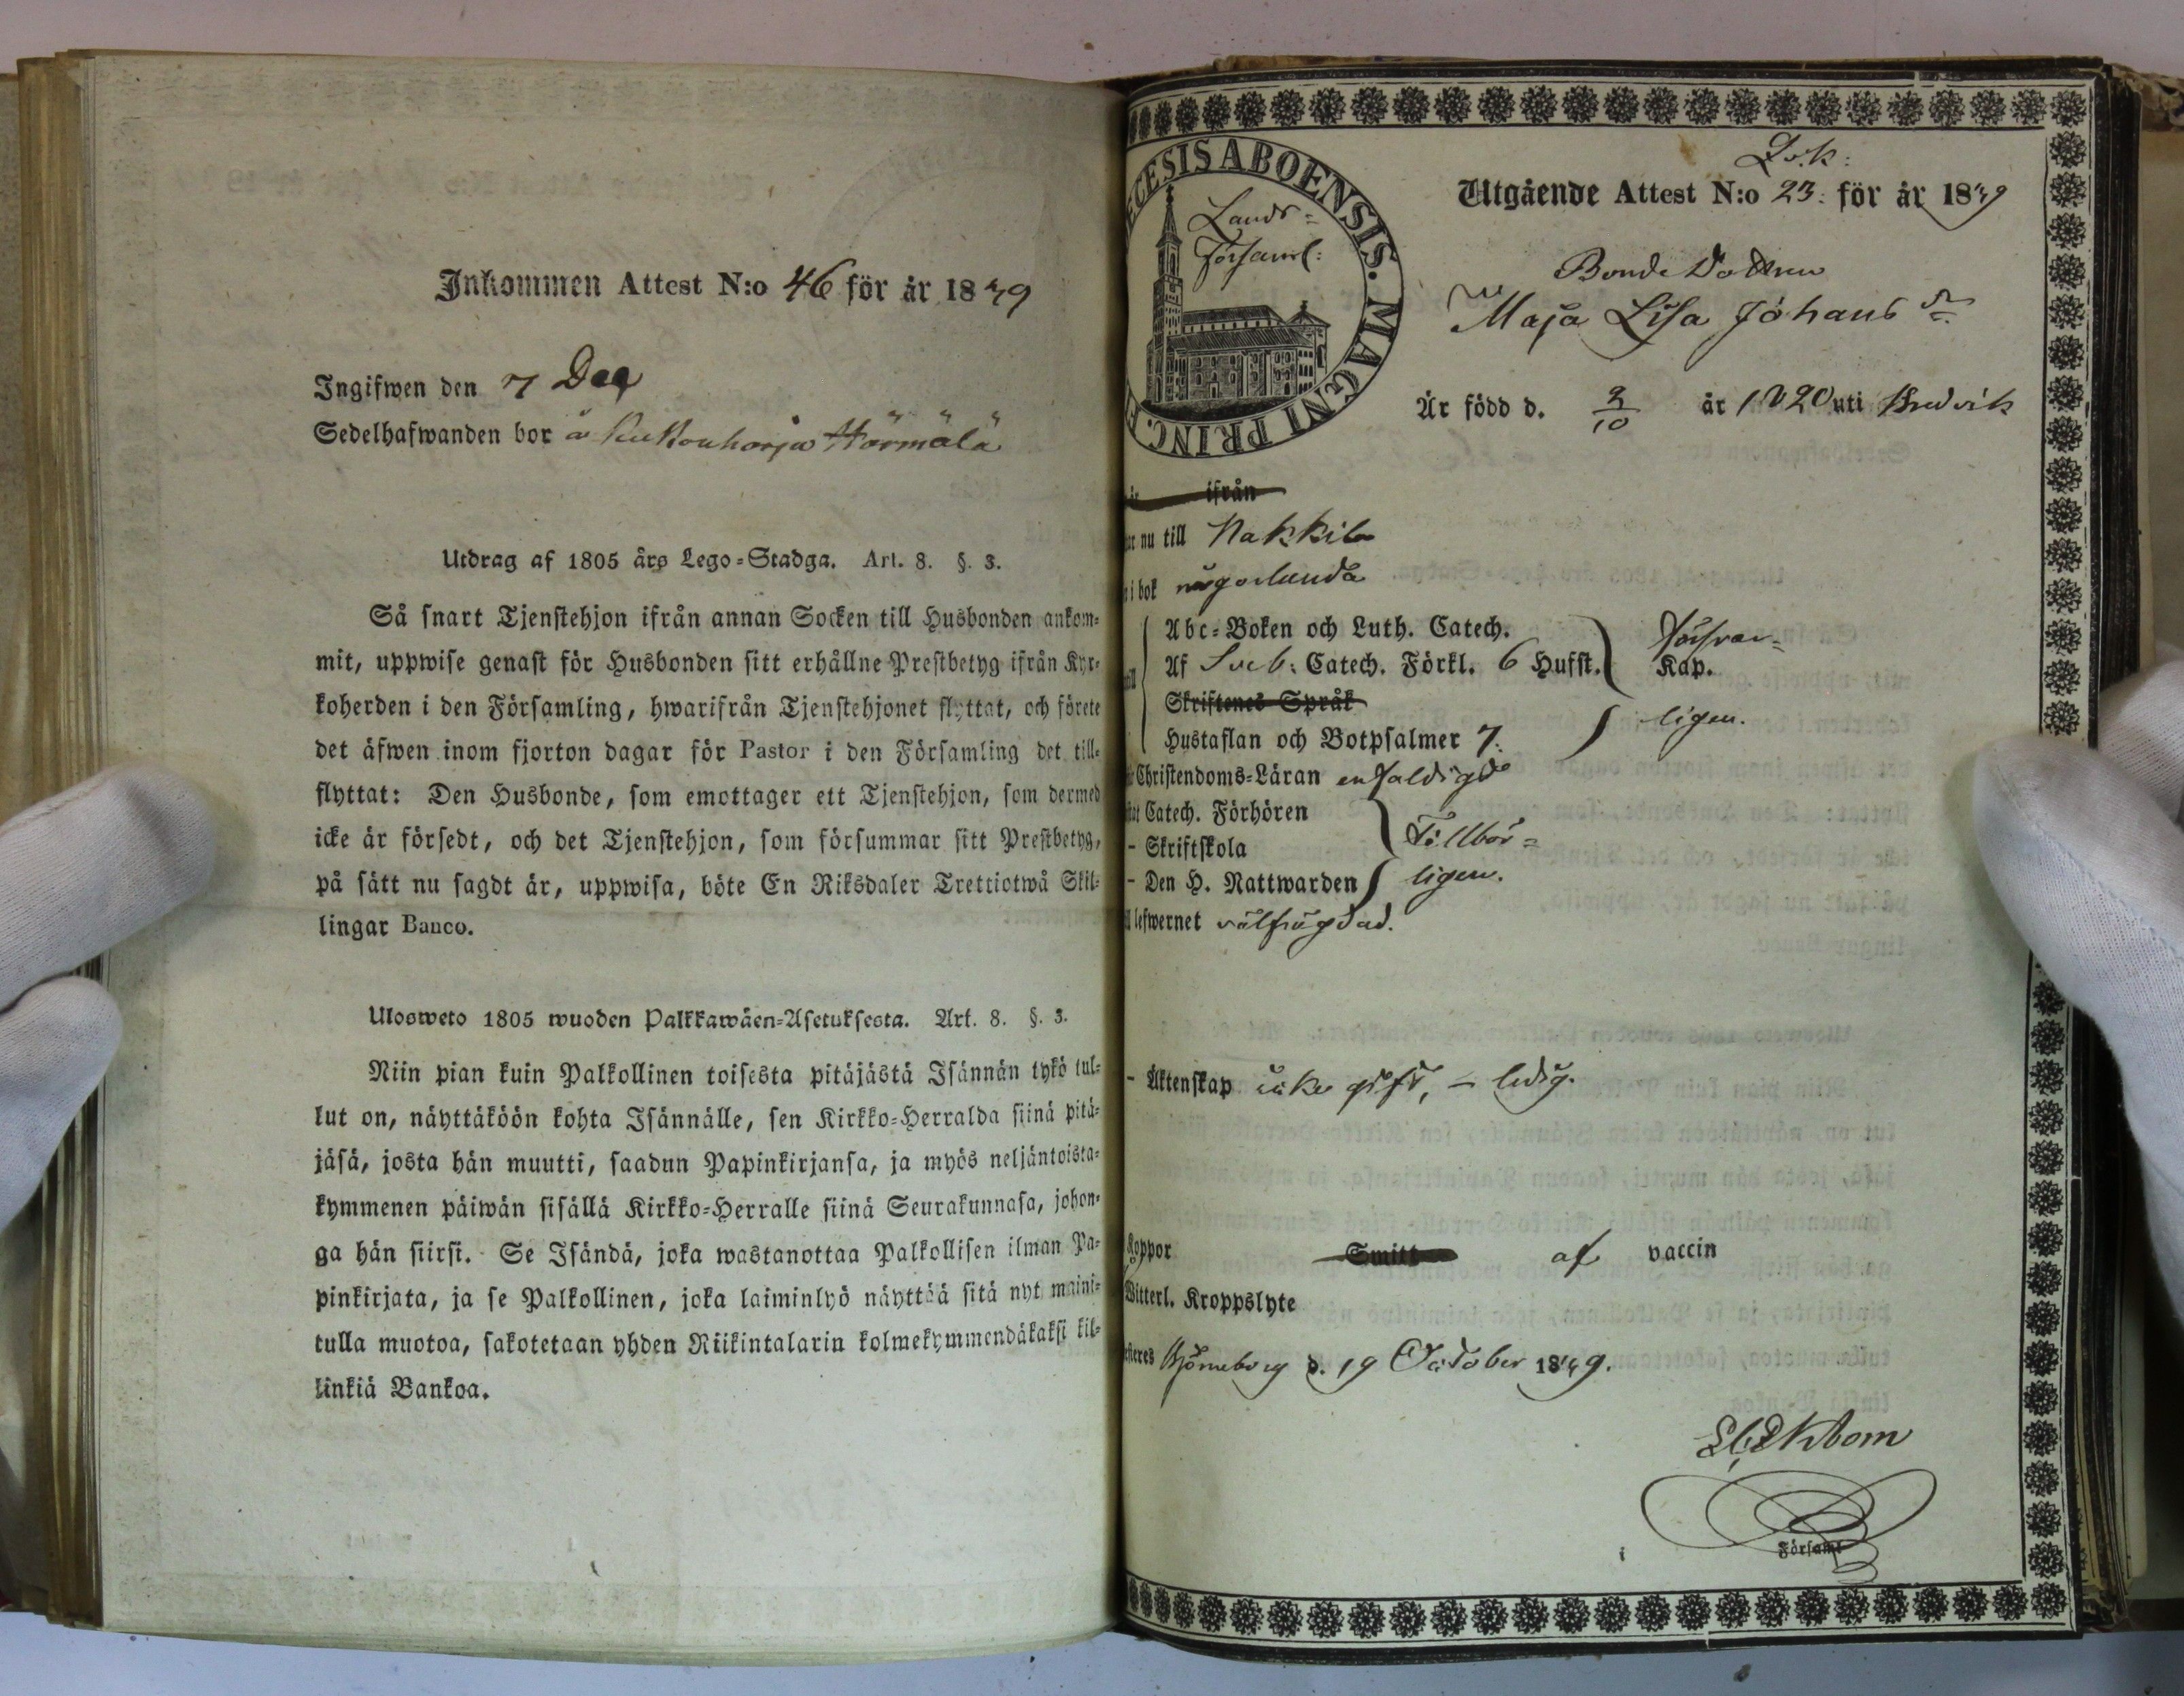 Inkommen Attest N:o 46 för år 1849
Ingifwen den 7 Dec
Sedelhafwanden bor å Kukonharja Hörmälä
Utdrag af 1805 års Lego-Stadga. Art. 8. §. 3.
Så snart Tjenstehjon ifrån annan Socken till Husbonden ankom-
mit, uppwise genast för Husbonden sitt erhållne Prestbetyg ifrån Kyr-
koherden i den Församling, hwarifrån Tjenstehjonet flyttat, och förete
det äfwen inom fjorton dagar för Pastor i den Församling det till-
flyttat: Den Husbonde, som emottager ett Tjenstehjon, som dermed
icke är försedt, och det Tjenstehjon, som försummar sitt Prestbetyg,
på sätt nu sagdt är, uppwisa, böte En Riksdaler Trettiotwå Skil-
lingar Banco.
Ulosweto 1805 wuoden Palkkawäen-Asetuksesta. Art. 8. §. 3.
Niin pian kuin Palkollinen toisesta pitäjästä Isännän tykö tul-
lut on, näyttäköön kohta Isännälle, sen Kirkko-Herralda siinä pitä-
jäsä, josta hän muutti, saadun Papinkirjansa, ja myös neljäntoista-
kymmenen päiwän sisällä Kirkko-Herralle siinä Seurakunnasa, johon-
ga hän siirsi. Se Isändä, joka wastanottaa Palkollisen ilman Pa-
pinkirjata, ja se Palkollinen, joka laiminlyö näyttää sitä nyt maini-
tulla muotoa, sakotetaan yhden Riikintalarin kolmekymmendäkaksi kil-
linkiä Bankoa.
ECESIS ABOENSIS. MAGNI PRINC. F
Lands-
Församl:
Utgående Attest N:o 23. för år 1849
Bonde Dottren
Maja Lisa Johans dr
Är född d. 2/10 år 1820 uti Bredvik
ifrån
nu till Nakkila
i bok någorlunda
Abc-Boken och Luth. Catech.
Af Sveb: Catech. Förkl. 6 Hufst.
försvar-
Kap.
Skriftenes Språk
Hustaflan och Botpsalmer 7.
ligen.
Christendoms-Läran enfaldigt
Catech. Förhören
- Skriftskola
Tillbör-
- Den H. Nattwarden
ligen.
lefwernet välfrägdad.
- Äktenskap icke gift, - ledig.
Koppor Smitt af vaccin
Witterl. Kroppslyte
Björneborg d. 19 October 1849.
Ekbom
i Församl